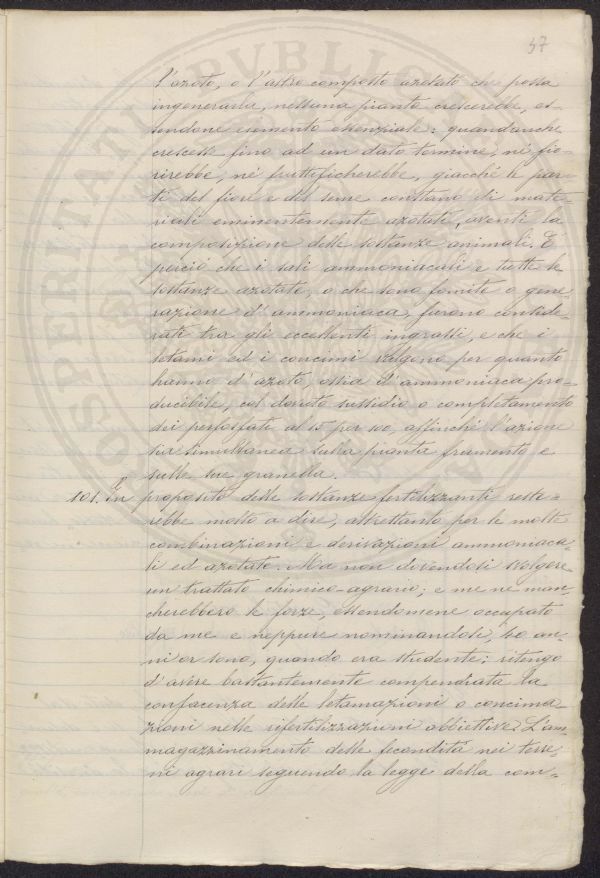 37
l'azoto, o l'altro composto azotato che possa
ingenerarla, nessuna pianta crescerebbe, es-
sendone elemento essenziale: quand'anche
crescesse fino ad un dato termine, nè fio-
rirebbe, nè fruttificherebbe, giacchè le par-
ti del fiore e del seme constano di mate-
riali eminentemente azotati, aventi la
composizione delle sostanze animali. È
perciò che i sali ammoniacali e tutte le
sostanze azotate, o che sono fomite o gene-
razione d'ammoniaca, furono conside-
rati tra gli eccellenti ingrassi, e che i
letami ed i concimi valgono per quanto
hanno d'azoto, ossia d'ammoniaca pro-
ducibile, col dovuto sussidio o completamento
dei perfosfati al 15 per 100, affinchè l'azione
sia simultanea sulla pianta frumento e
sulle sue granella.
101. In proposito delle sostanze fertilizzanti reste-
rebbe molto a dire, altrettanto per le molte
combinazioni e derivazioni ammoniaca-
li ed azotate. Ma non dovendosi svolgere
un trattato chimico-agrario; e me ne man-
cherebbero le forze, essendomene occupato
da me e neppure nominandoli, 40 an-
ni or sono, quando era studente; ritengo
d'avere bastantemente compendiata la
confacenza delle letamazioni o concima-
zioni nelle rifertilizzazioni obbiettive. L'am-
magazzinamento delle fecondità nei terre-
ni agrari seguendo la legge della com-
PROSPERITATI PVBLICAE